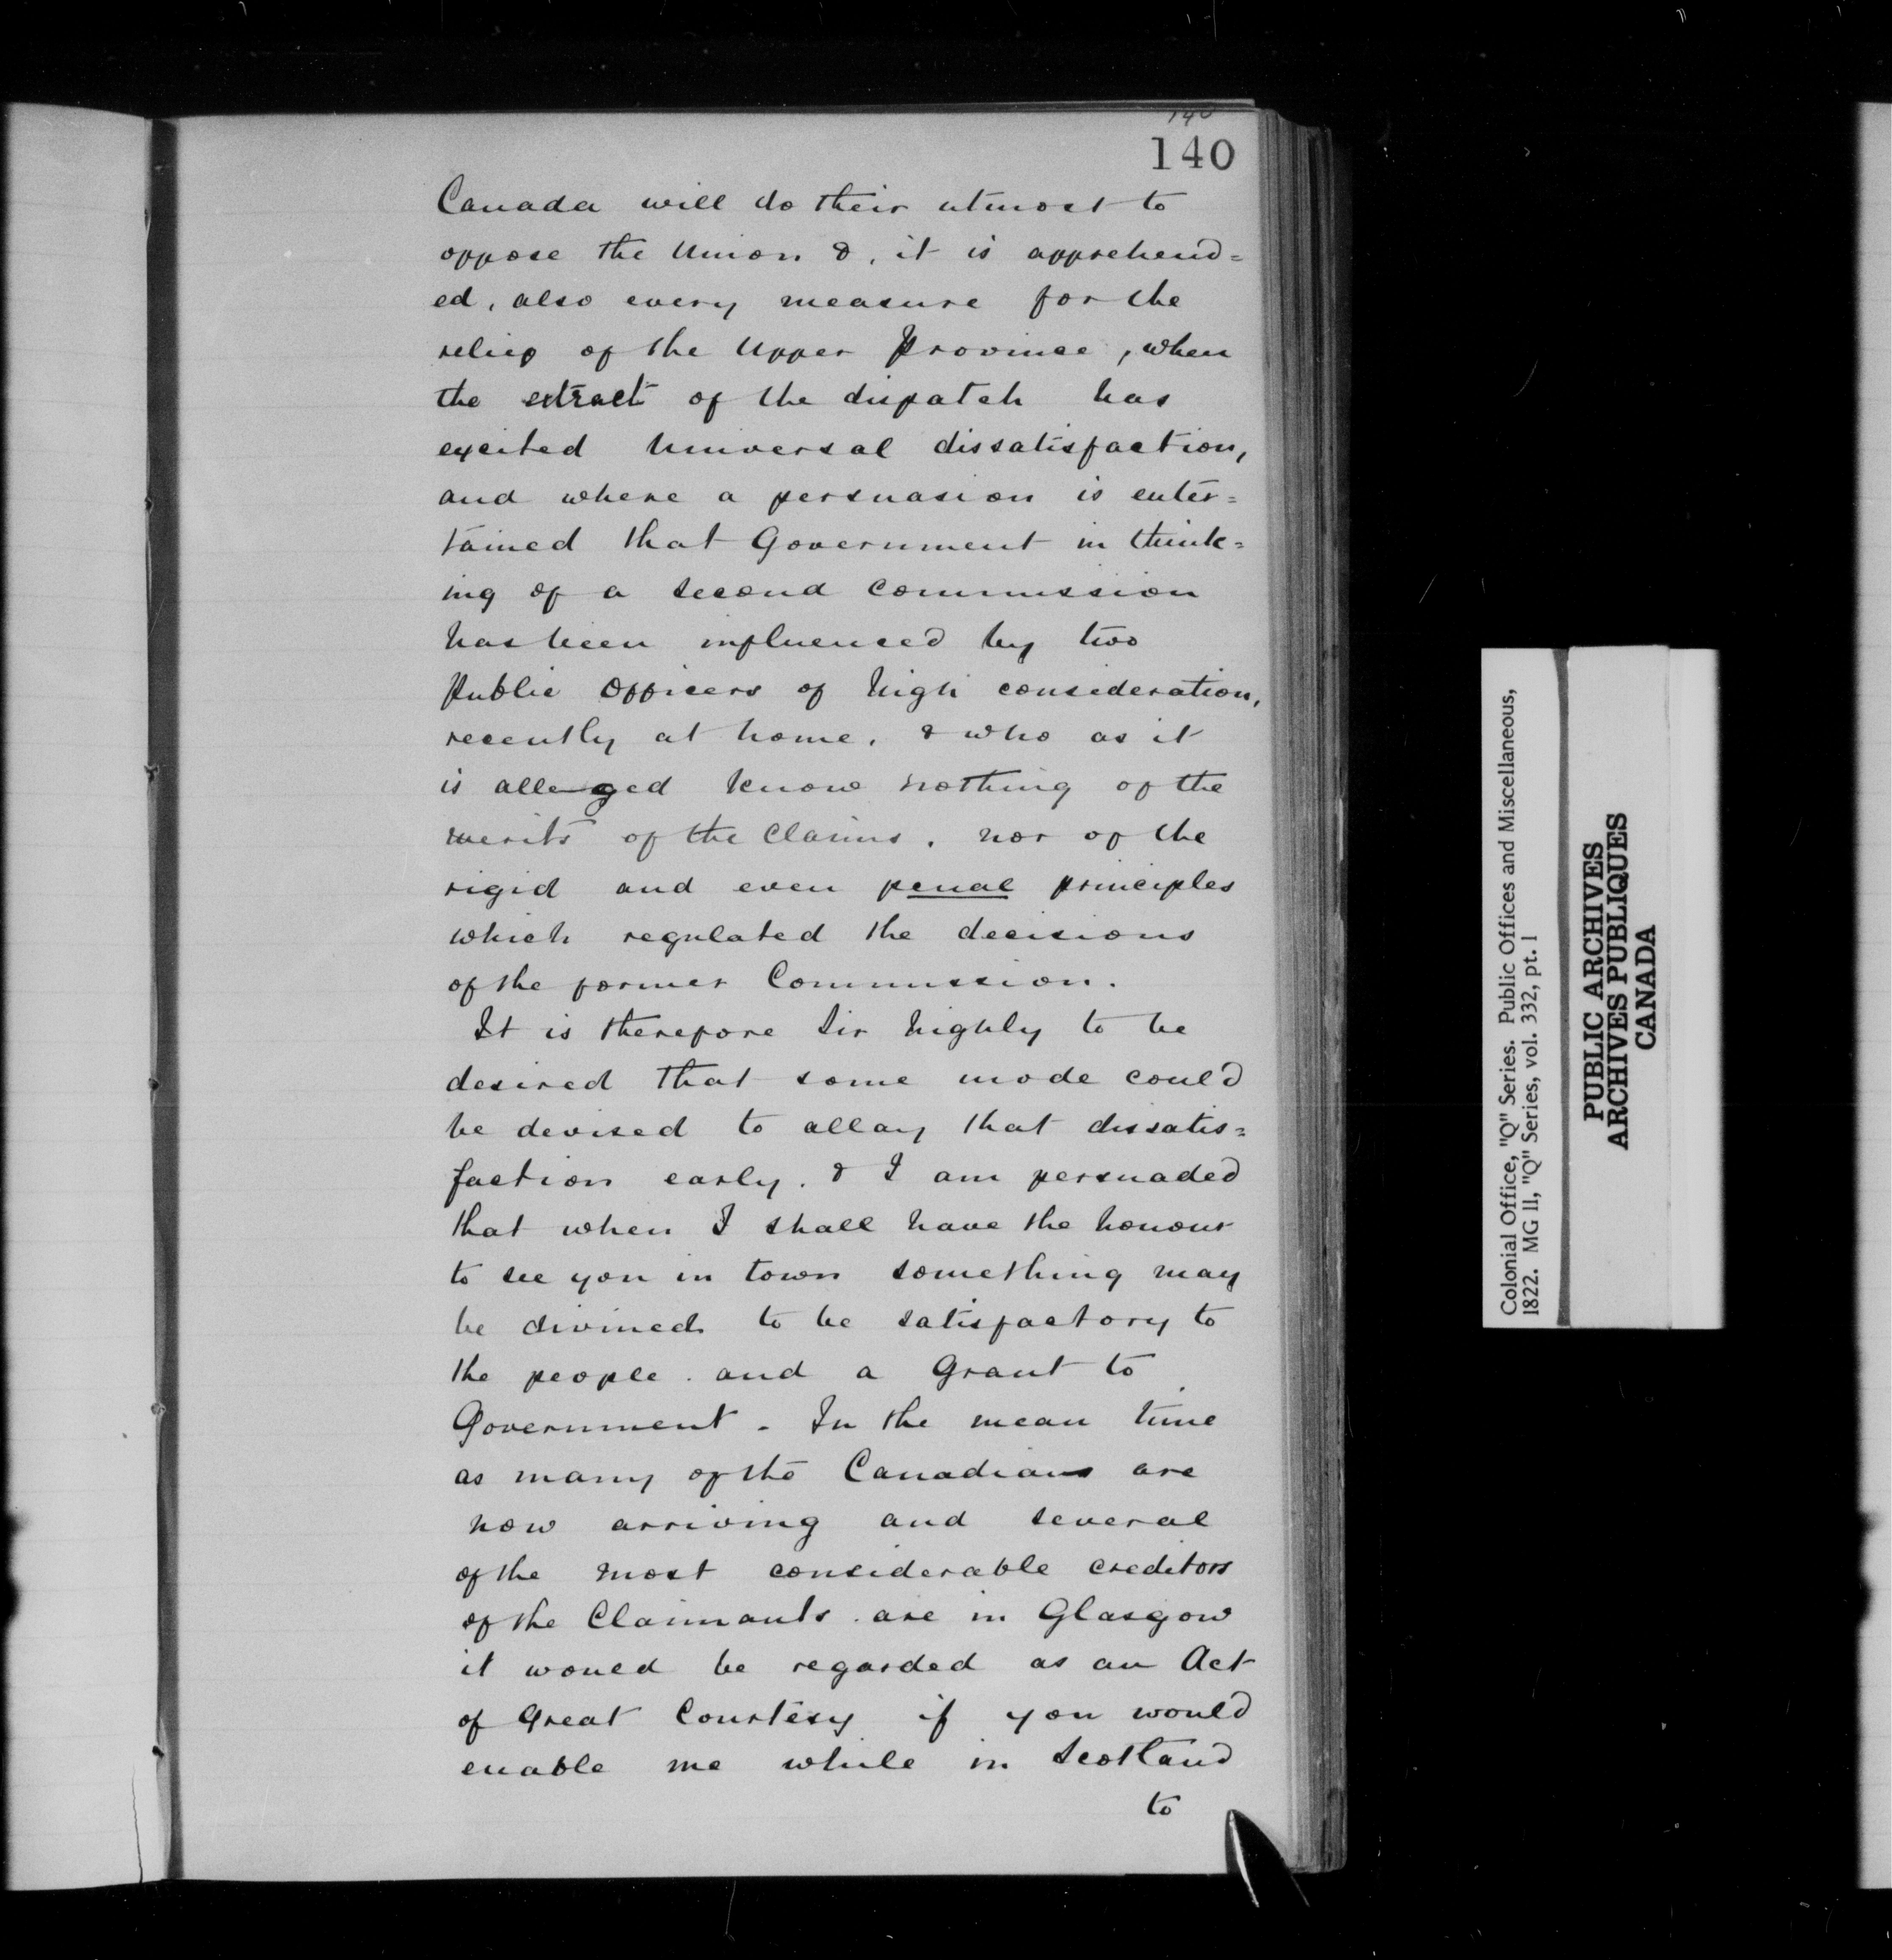 140
140
Canada will do their utmost to
oppose the Union &, it is apprehend=
ed, also every measure for the
relief of the Upper Province, when
the extract of the dispatch has
excited Universal dissatisfaction,
and where a persuasion is enter=
tained that Government in think=
ing of a second Commission
has been influenced by two
Public Officers of high consideration,
recently at home, & who as it
is alledged know nothing of the
merits of the Claims, nor of the
rigid and even penal principles
which regulated the decisions
of the former Commission.
It is therefore Sir highly to be
desired that some mode could
be devised to allay that dissatis=
faction early. & I am persuaded
that when I shall have the honour
to see you in town something may
be divined to be satisfactory to
the people. and a Grant to
Government. In the mean time
as many of the Canadians are
now arriving and several
of the most considerable creditors
of the Claimants are in Glasgow
it would be regarded as an Act
of Great Courtesy if you would
enable me while in Scotland
to
Colonial Office, "Q" Series. Public Offices and Miscellaneous,
1822. MG 11, "Q" Series, vol. 332, pt. 1
PUBLIC ARCHIVES
ARCHIVES PUBLIQUES
CANADA